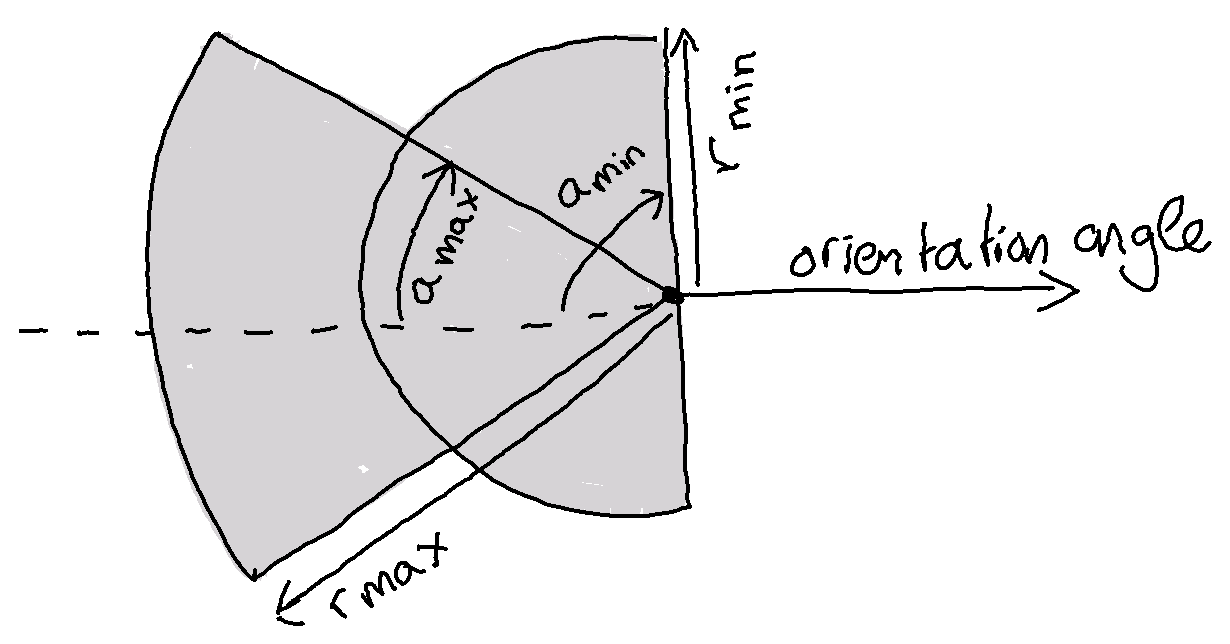 r min
a min
a max
orientation angle
r max